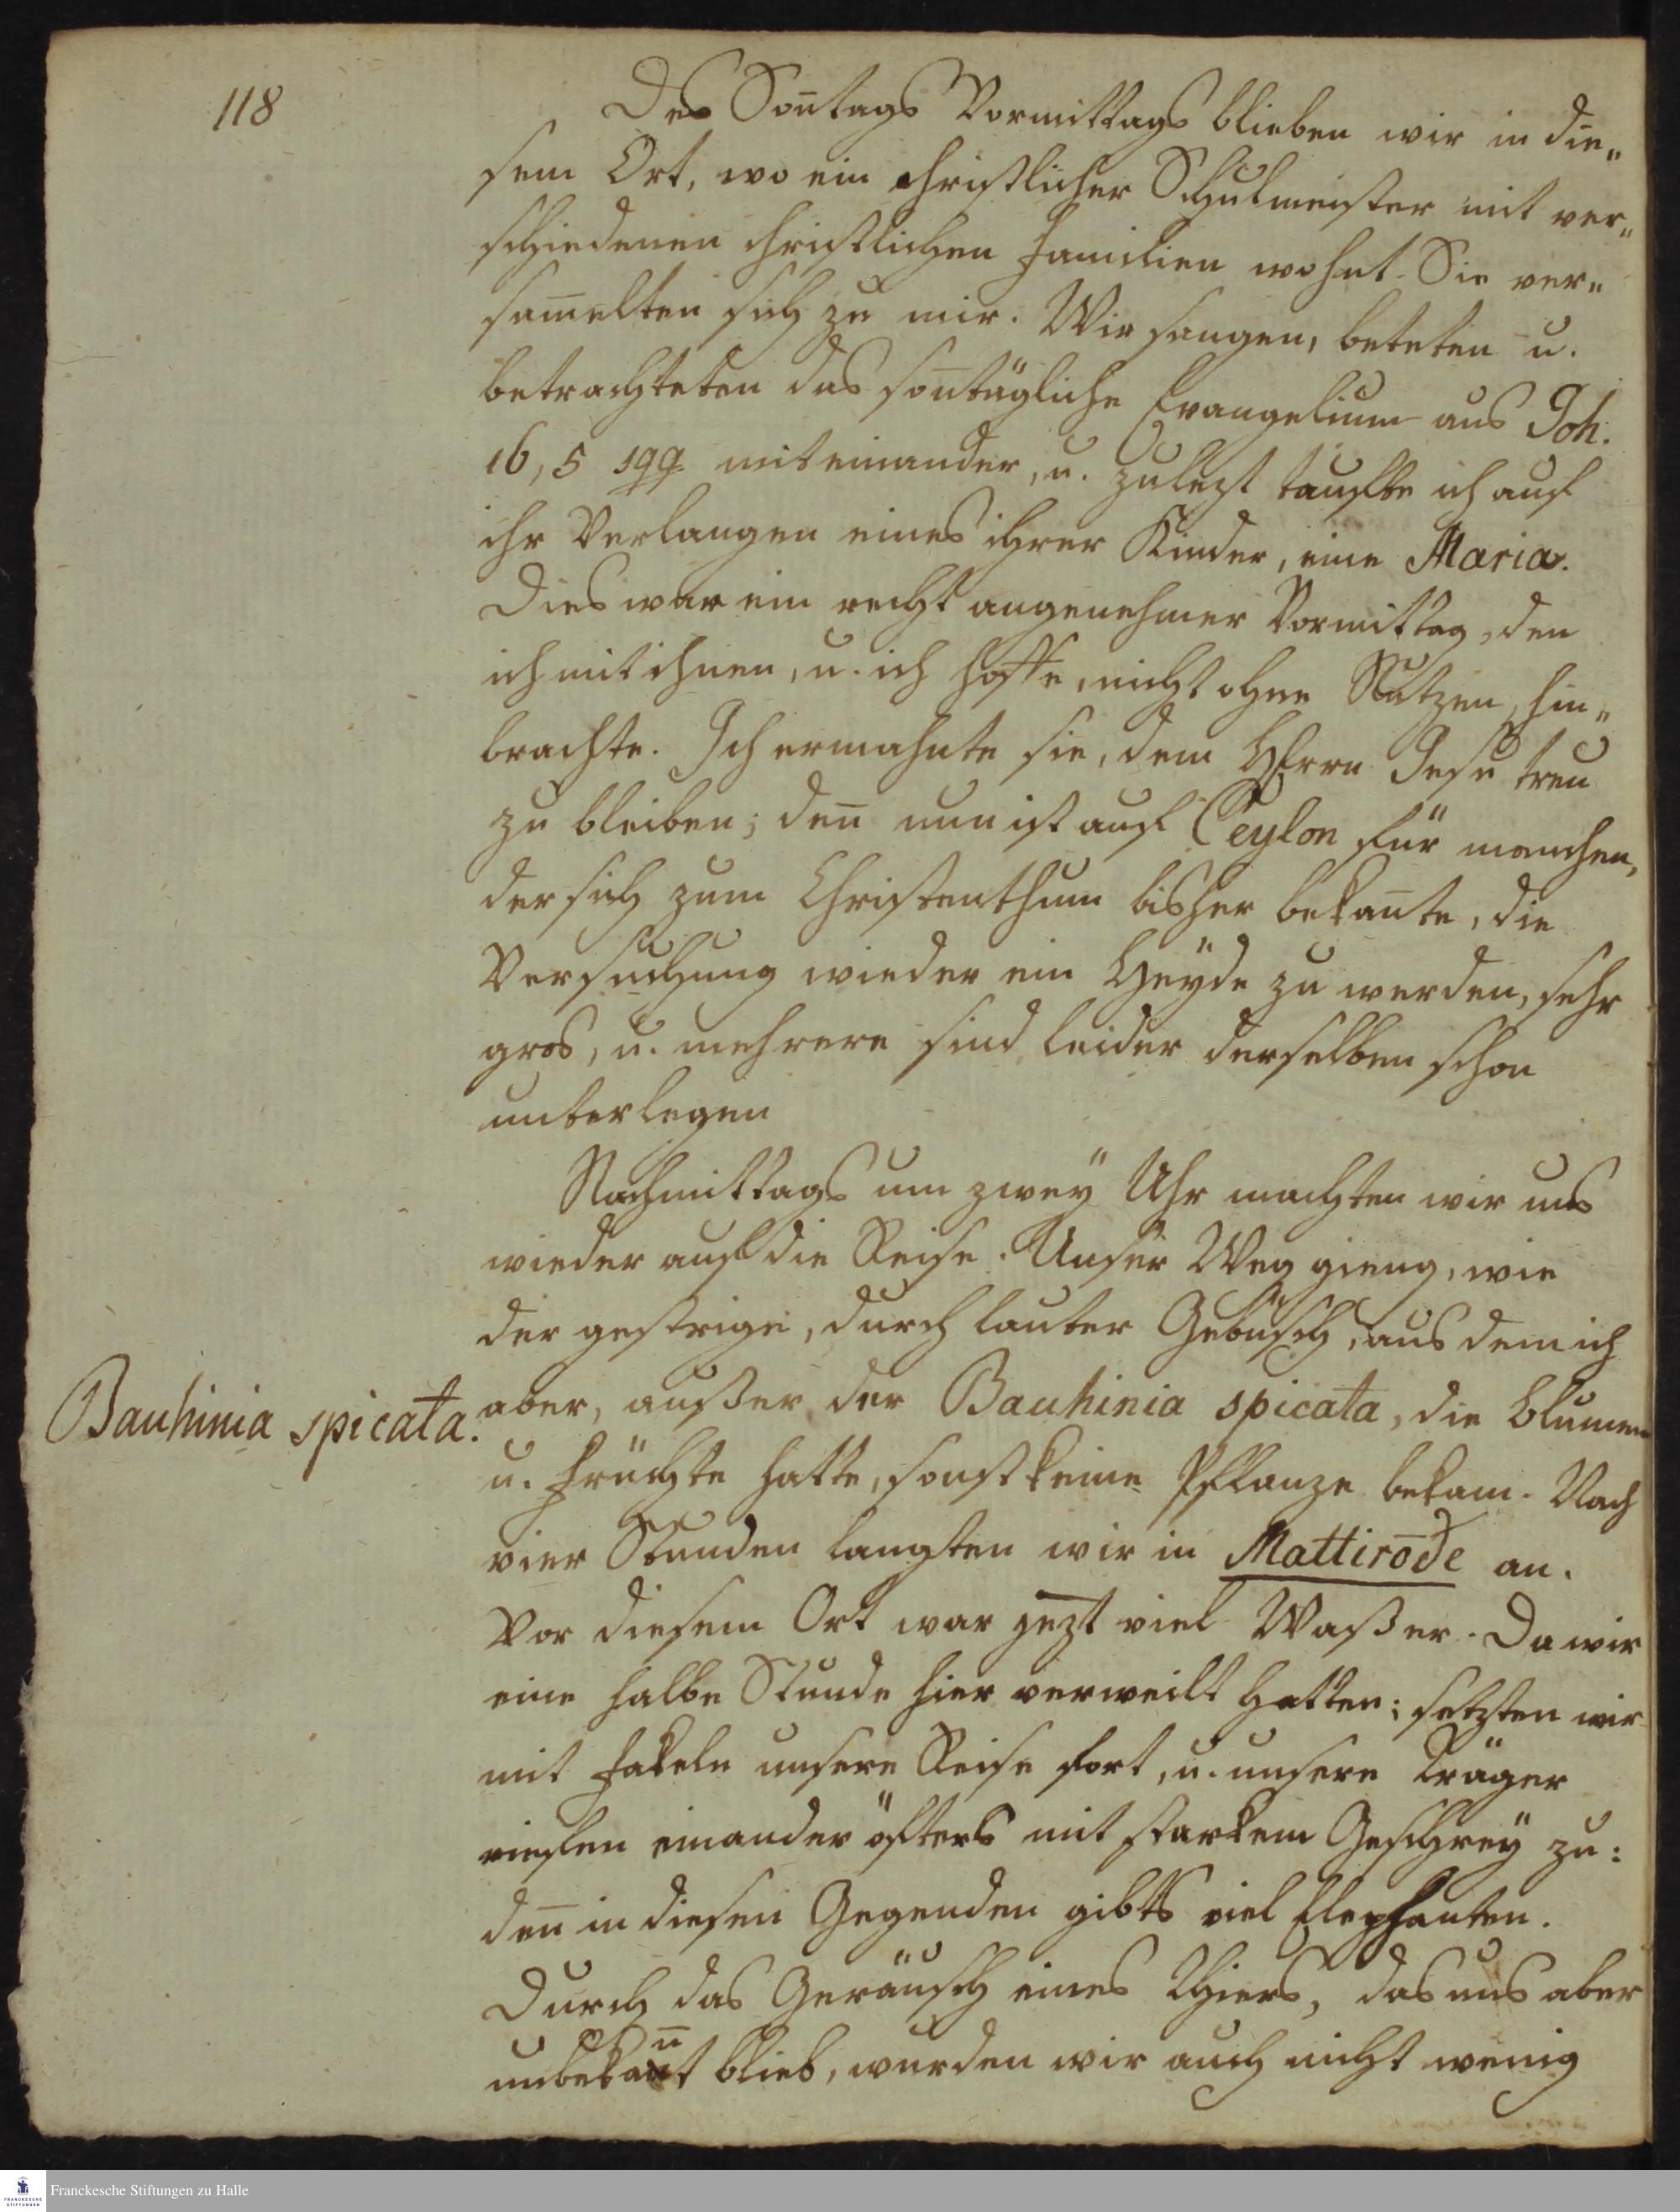 118
Des Son̄tags Vormittags blieben wir in die„
sem Ort, wo ein christlicher Schulmeister mit ver„
schiedenen christlichen Familien wohnt. Sie ver„
sam̄elten sich zu mir. Wir sangen, beteten u.
betrachteten das son̄tägliche Evangelium aus Joh.
16, 5 sqq miteinander, u. zulezt taufte ich auf
ihr Verlangen eines ihrer Kinder, eine Maria.
Dies war ein recht angenehmer Vormittag, den
ich mit ihnen, u. ich hoffe, nicht ohne Nutzen, hin„
brachte. Ich ermahnte sie, dem HErrn Jesu treu
zu bleiben; den̄ nun ist auf Ceylon für manchen,
der sich zum Christenthum bisher bekan̄te, die
Versuchung wieder ein Heyde zu werden, sehr
gros, u. mehrere sind leider derselben schon
unterlegen
Nachmittags um zwey Uhr machten wir uns
wieder auf die Reise. Unser Weg gieng, wie
der gestrige, durch lauter Gebüsch, aus dem ich
Bauhinia spicata.
aber, außer der Bauhinia spicata, die Blumen
u. Früchte hatte, sonst keine Pflanze bekam. Nach
vier Stunden langten wir in Mattirōde an.
Vor diesem Ort war jezt viel Waßer. Da wir
eine halbe Stunde hier verweilt hatten; setzten wir
mit Fakeln unsere Reise fort, u. unsere Träger
riefen einander öfters mit starkem Geschrey zu:
den̄ in diesen Gegenden gibts viel Elephanten.
Durch das Geräusch eines Thiers, das uns aber
unbekan̄t blieb, wurden wir auch nicht wenig
Franckesche Stiftungen zu Halle
FRANCKESCHE
STIFTUNGEN